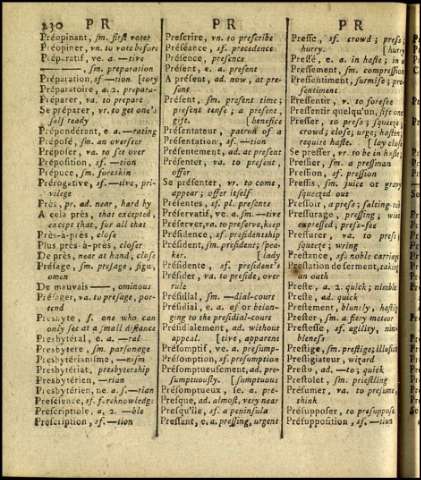 230 PR PR PR
Préopinant, sm. first voter
Préopiner, vn. to vote before
Préparatif, ve. a. —tive
———, sm. preparation
Préparation, sf —tion [tory
Préparatoire, a. 2. prepara-
Préparer, va. to prepare
Se préparer, vr. to get one's
self ready
Prépondérant, e. a. —rating
Préposé, sm. an overseer
Préposer, va. to set over
Préposition, sf. —tion
Prépuce, sm. foreskin
Prérogative, sf. —tive, pri-
vilege
Près, pr. ad. near, hard by
A cela près, that excepted,
except that, for all that
Près-à-près, close
Plus près-à-près, closer
De près, near at hand, close
Présage, sm. presage, sign,
omen
De mauvais —, ominous
Présager, va. to presage, por-
tend
Presbyte, s. one who can
only see at a small distance
Presbytéral, e. a. —ral
Presbytere, sm. parsonage
Presbytérianisme, —nism
Presbytériat, presbytership
Presbytérien, —rian
Presbytérien, ne. a. s. —rian
Prescience, sf. foreknowledge
Prescriptible, a. 2. —ble
Prescription, sf. —tion
Prescrire, vn. to prescribe
Préséance, sf. precedence
Présence, presence
Présent, e. a. present
A présent, ad. now, at pre-
sent
Présent, sm. present time;
present tense; a present,
gift. [benefice
Présentateur, patron of a
Présentation, sf. —tion
Présentement, ad. at present
Présenter, va. to present,
offer
Se présenter, vr. to come,
appear; offer itself
Présentes, sf. pl. presents
Préservatif, ve. a. sm. —tive
Préserver, va. to preserve, keep
Présidence, sf. presidentship
Président, sm. president; spea-
ker. [lady
Présidente, sf. president's
Présider, va. to preside, over
rule
Présidial, sm. —dial-court
Présidial, e. a. of or belong-
ing to the presidial-court
Présidialement, ad. without
appeal. [tive, apparent
Présomptif, ve. a. presump-
Présomption, sf. presumption
Présomptueusement, ad. pre-
sumptuously. [sumptuous
Présomptueux, se. a. pre-
Presque, ad. almost, very near
Presqu'île, sf. a peninsula
Pressant, e. a. pressing, urgent
Presse, sf. crowd; press;
hurry. [hurry
Pressé, e. a. in haste; in a
Pressement, sm. compression
Pressentiment, surmise; pre-
sentiment
Pressentir, v. to foresee
Pressentir quelqu'un, sift one
Presser, to press; squeeze;
crowd; close; urge; hasten;
require haste. [lay close
Se presser, vr. to be in haste;
Pressier, sm. a pressman
Pression, sf. pression
Pressis, sm. juice or gravy
squeezed out
Pressoir, a press; salting-tub
Pressurage, pressing; wine
expressed; press-fee
Pressurer, va. to press;
squeeze; wring
Prestance, sf. noble carriage
Prestation de serment, taking
an oath
Preste, a. 2. quick; nimble
Preste, ad. quick
Prestement, blunily, hastily
Prester, sm. a fiery meteor
Prestesse, sf. agility, nim-
bleness
Prestige, sm. prestige; illusion
Prestigiateur, wizard
Presto, ad. —to; quick
Prestolet, sm. priestling
Présumer, va. to presume,
think
Présupposer, to presuppose
Présupposition, sf. —tion